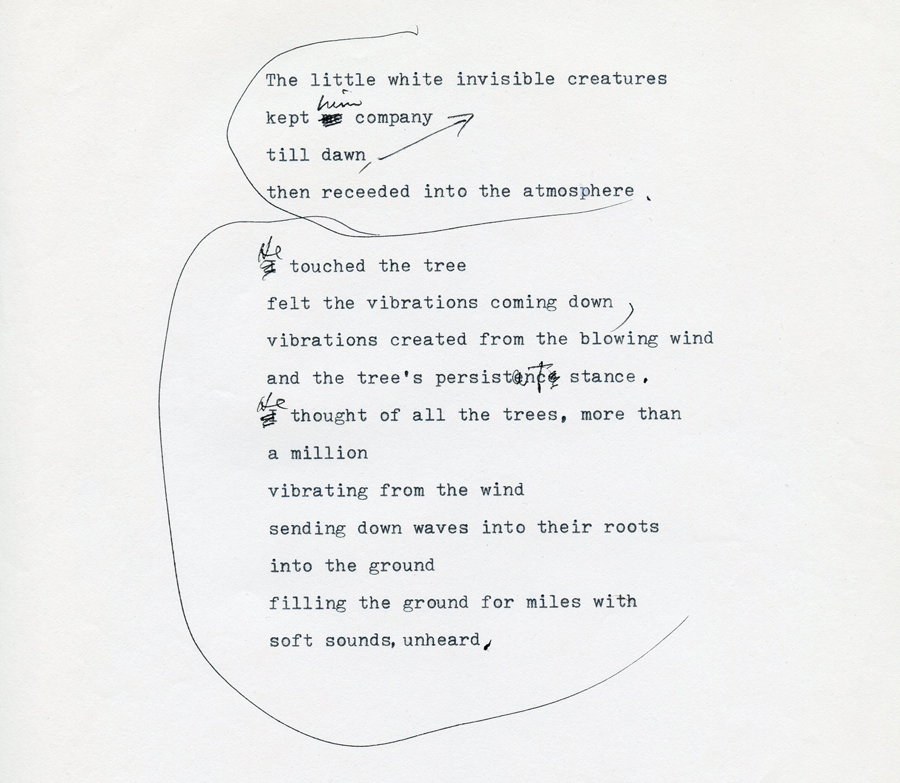 The little white invisible creatures
kept him company
till dawn,
then receeded into the atmosphere.
He touched the tree
felt the vibrations coming down,
vibrations created from the blowing wind
and the tree's persistent stance.
He thought of all the trees, more than
a million
vibrating from the wind
sending down waves into their roots
into the ground
filling the ground for miles with
soft sounds, unheard,